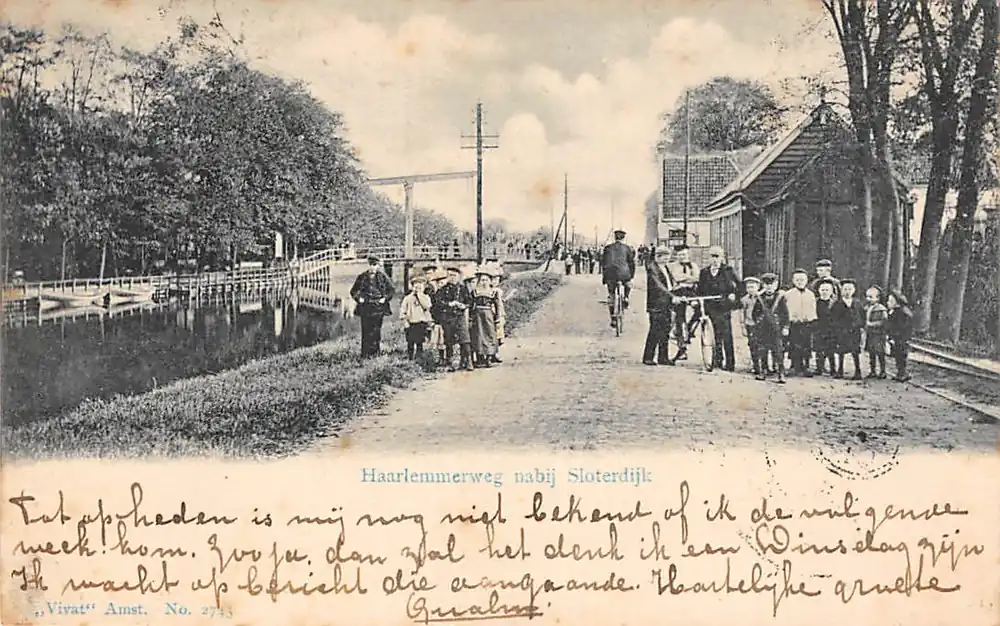 Haarlemmerweg nabij Sloterdijk
Tot op heden is mij nog niet bekend of ik de volgende
week kom. Zoo ja, dan zal het denk ik een Woensdag zijn
Ik wacht op bericht die aangaande. Hartelijke groete
„Vivat" Amst. No.